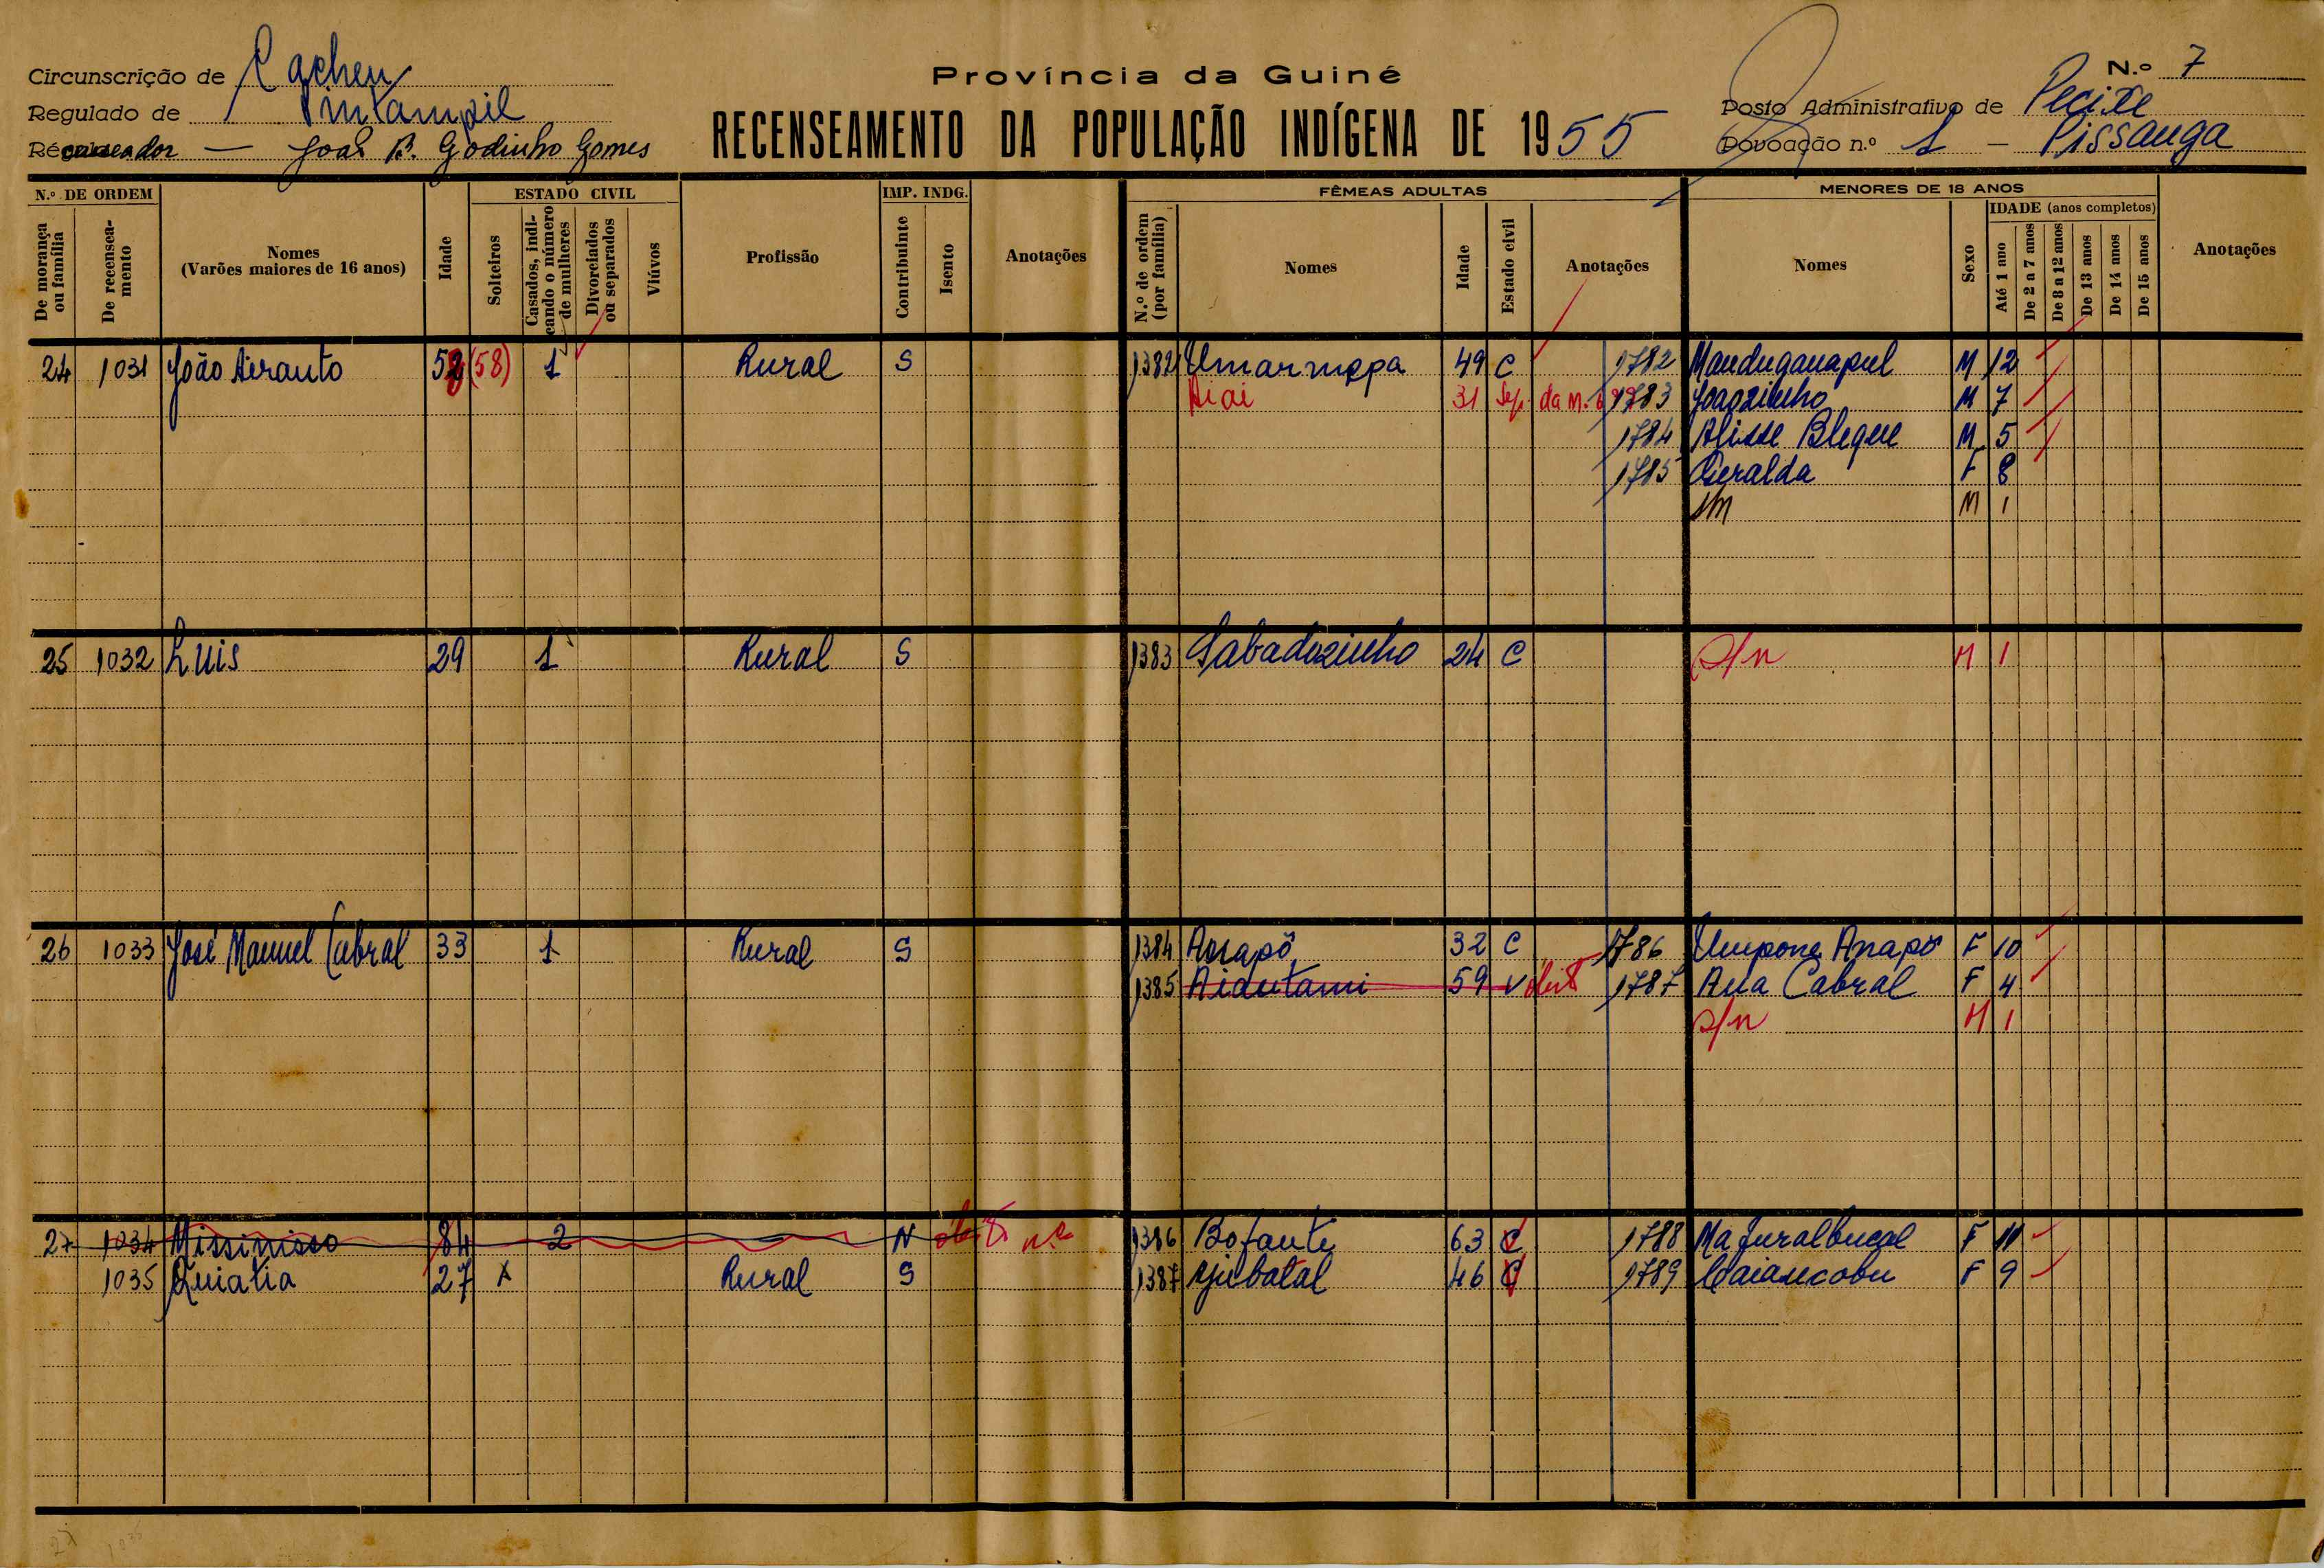 Circunscrição de Cacheu
Província da Guiné
N.º 7
Regulado de Pintampil
RECENSEAMENTO DA POPULAÇÃO INDÍGENA DE 1955
Posto Administrativo de Pecixe
Recenseador — João B. Godinho Gomes
Povoação n.º 1 - Pissanga
N.º DE ORDEM
De morança ou família
De recenseamento
Nomes
(Varões maiores de 16 anos)
Idade
ESTADO CIVIL
Solteiros
Casados, indicando o número de mulheres
Divorciados ou separados
Viúvos
Profissão
IMP. INDG.
Contribuinte
Isento
Anotações
FÊMEAS ADULTAS
N.º de ordem (por família)
Nomes
Idade
Estado civil
Anotações
MENORES DE 18 ANOS
Nomes
Sexo
IDADE (anos completos)
Até 1 ano
De 2 a 7 anos
De 8 a 12 anos
De 13 anos
De 14 anos
De 15 anos
Anotações
24 1031 João (58) 1 Rural S 1382 49 C 1782 M 12
31 Sep. da M. 1783 Joaozinho M 7
1784 M 5
1785 Geralda F 8
M 1
25 1032 Luis 29 1 Rural S 1383 Sabadozinho 24 C s/n M 1
26 1033 José Manuel Cabral 33 1 Rural S 1384 32 C 1786 F 10
1385 Aidutami 59 V 1787 Ana Cabral F 4
s/n M 1
27 1034 84 2 N 1386 Bofante 63 1788 F 11
1035 Quiatia 27 X Rural S 1387 46 1789 F 9